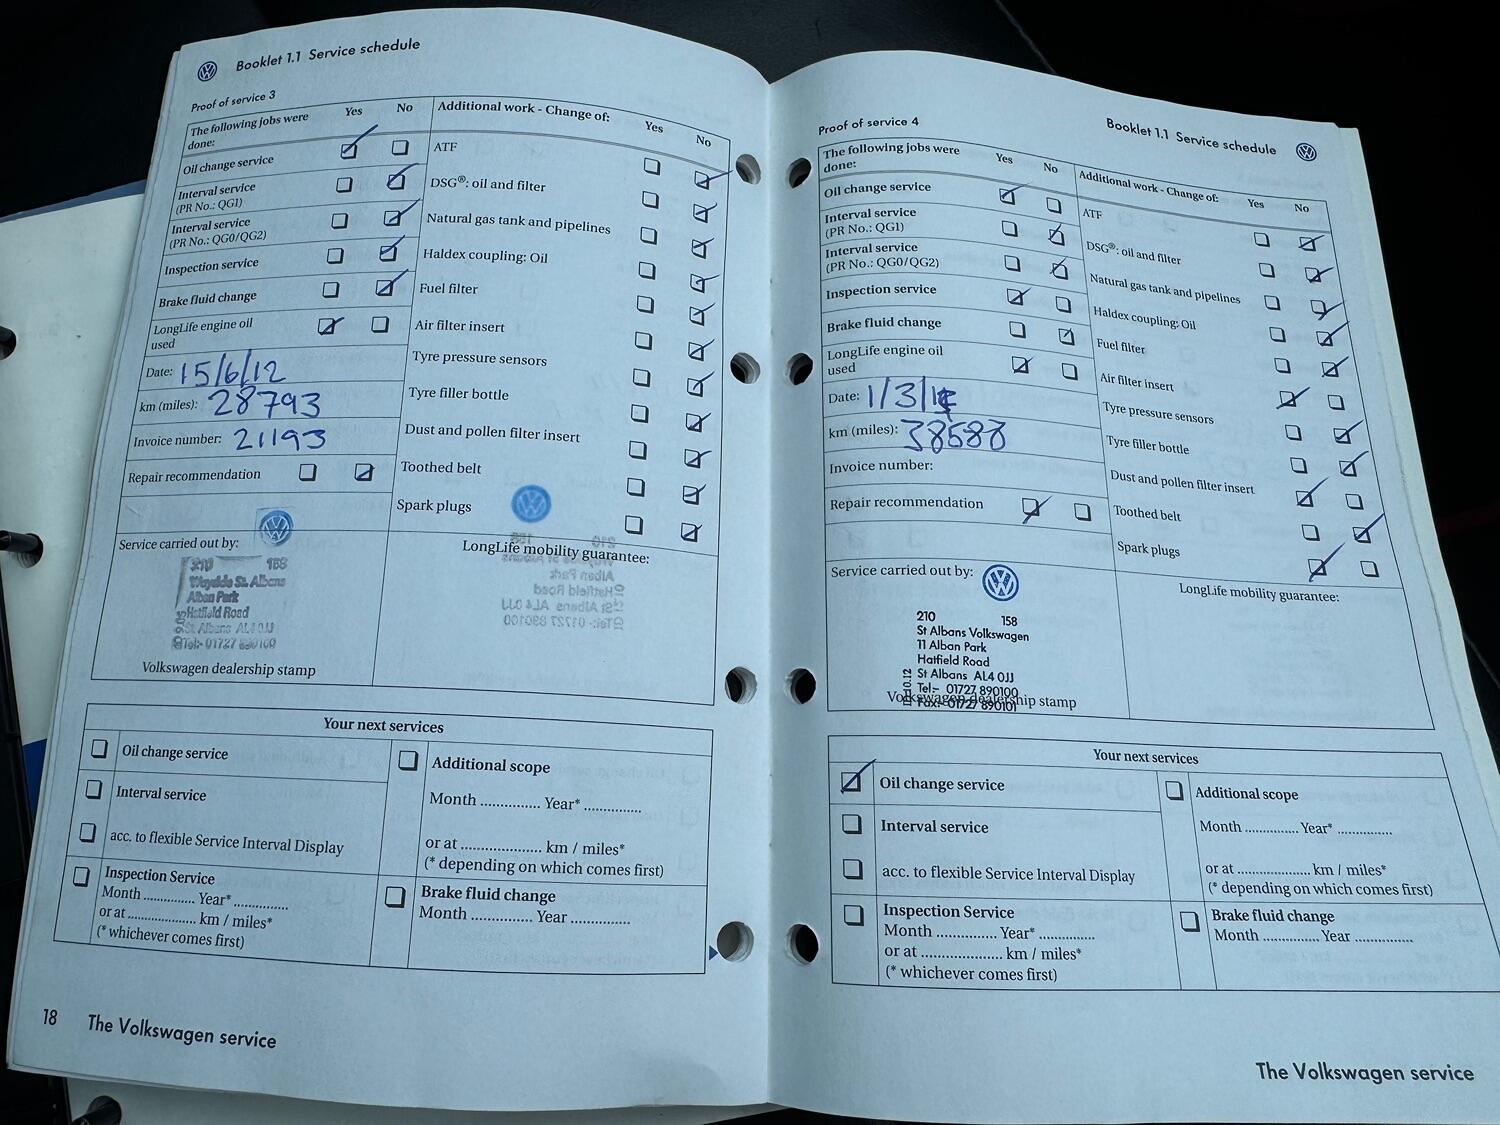 Booklet 1.1 Service schedule
Proof of service 3
The following jobs were done:
Yes
No
Oil change service
Interval service
(PR No.: QG1)
Interval service
(PR No.: QG0/QG2)
Inspection service
Brake fluid change
LongLife engine oil
used
Date: 15/6/12
km (miles): 28793
Invoice number: 21193
Repair recommendation
Service carried out by:
210 158
Wayside St. Albans
Alban Park
Hatfield Road
St Albans AL4 0JJ
Tel:- 01727 890100
Volkswagen dealership stamp
Additional work - Change of:
Yes
No
ATF
DSG®: oil and filter
Natural gas tank and pipelines
Haldex coupling: Oil
Fuel filter
Air filter insert
Tyre pressure sensors
Tyre filler bottle
Dust and pollen filter insert
Toothed belt
Spark plugs
LongLife mobility guarantee:
Your next services
Oil change service
Interval service
acc. to flexible Service Interval Display
Inspection Service
Month .............. Year* ..............
or at .................... km / miles*
(* whichever comes first)
Additional scope
Month .............. Year* ..............
or at .................... km / miles*
(* depending on which comes first)
Brake fluid change
Month .............. Year ..............
18 The Volkswagen service
Booklet 1.1 Service schedule
Proof of service 4
The following jobs were
done:
Yes
No
Oil change service
Interval service
(PR No.: QG1)
Interval service
(PR No.: QG0/QG2)
Inspection service
Brake fluid change
LongLife engine oil
used
Date: 1/3/
km (miles): 38588
Invoice number:
Repair recommendation
Service carried out by:
210 158
St Albans Volkswagen
11 Alban Park
Hatfield Road
St Albans AL4 0JJ
Tel:- 01727 890100
Fax:- 01727 890101
Volkswagen dealership stamp
Additional work - Change of:
Yes
No
ATF
DSG®: oil and filter
Natural gas tank and pipelines
Haldex coupling: Oil
Fuel filter
Air filter insert
Tyre pressure sensors
Tyre filler bottle
Dust and pollen filter insert
Toothed belt
Spark plugs
LongLife mobility guarantee:
Your next services
Oil change service
Interval service
acc. to flexible Service Interval Display
Inspection Service
Month .............. Year* ..............
or at .................... km / miles*
(* whichever comes first)
Additional scope
Month .............. Year* ..............
or at .................... km / miles*
(* depending on which comes first)
Brake fluid change
Month .............. Year ..............
The Volkswagen service